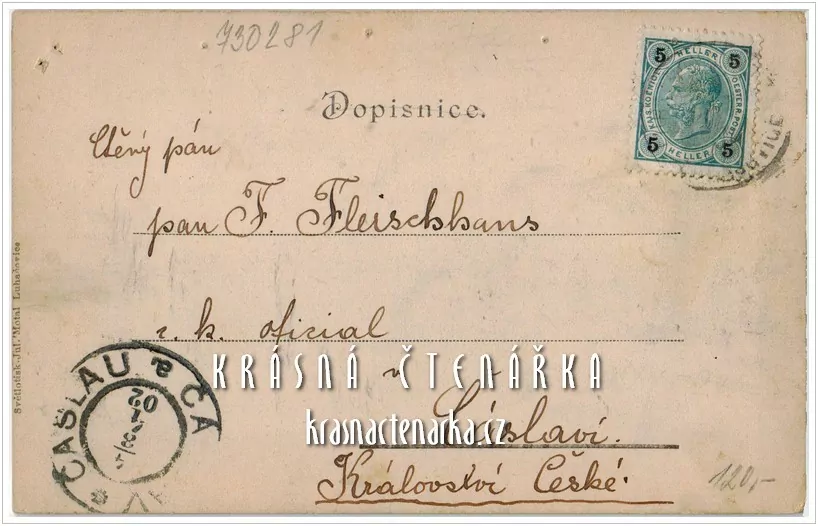 730281
Dopisnice.
5 HELLER 5
5 HELLER 5
Ctěný pán
pan F. Fleischhans
c. k. oficial
v
Čáslavi.
Království České.
KRÁSNÁ ČTENÁŘKA
krasnactenarka.cz
Světlotisk Jul. Motal Luhačovice
ČASLAU ČÁ
120,-